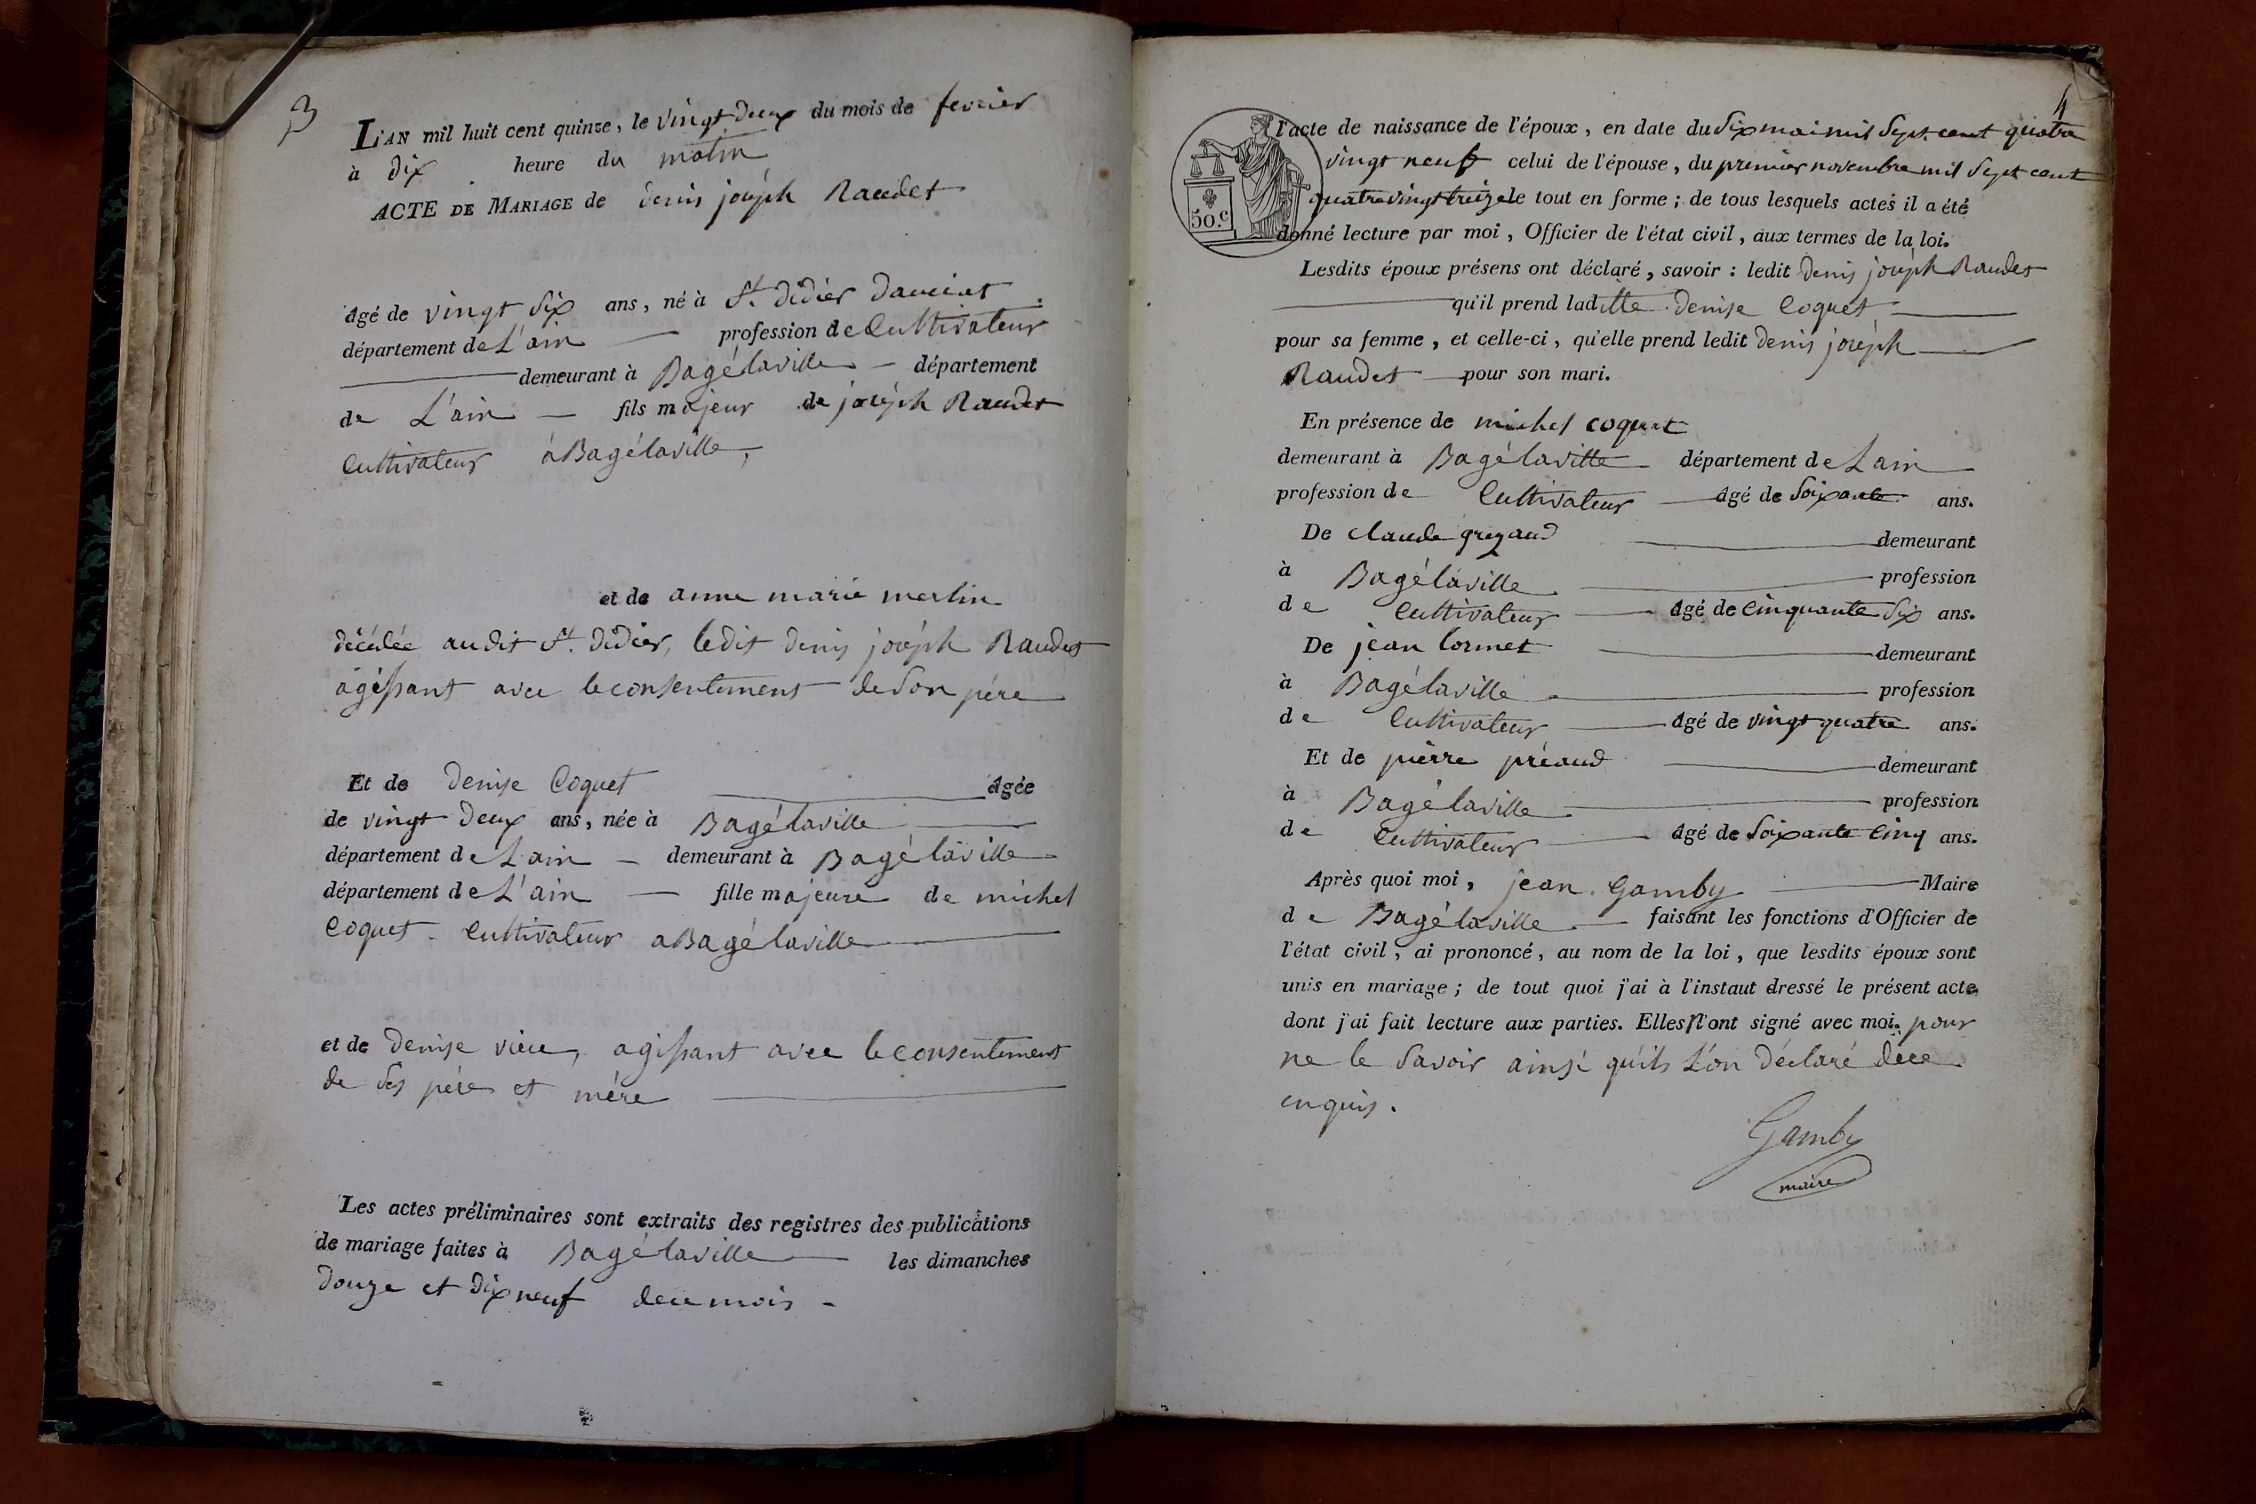 3
L'AN mil huit cent quinze, le vingt deux du mois de fevrier
à dix heure du matin
ACTE DE MARIAGE de denis joséph Raudet
âgé de vingt six ans, né à St. didier daussiat
département de L'ain profession de Cultivateur
demeurant à Bagélaville département
de L'ain fils majeur de joséph Raudet
Cultivateur à Bagélaville,
et de anne marie merlin
décédée audit St. didier, ledit denis joséph Raudet
agissant avec le consentement de son pére
Et de denise Coquet âgée
de vingt deux ans, née à Bagélaville
département de L'ain demeurant à Bagélaville
département de L'ain fille majeure de michel
Coquet Cultivateur a Bagélaville
et de denise agissant avec le consentement
de ses pére et mére
Les actes préliminaires sont extraits des registres des publications
de mariage faites à Bagélaville les dimanches
douze et dix neuf de ce mois
4
50.c
l'acte de naissance de l'époux, en date du six mai mil sept cent quatre
vingt neuf celui de l'épouse, du premier novembre mil sept cent
quatrevingt treize le tout en forme; de tous lesquels actes il a été
donné lecture par moi, Officier de l'état civil, aux termes de la loi.
Lesdits époux présens ont déclaré, savoir : ledit denis joséph Raudet
qu'il prend laditte denise Coquet
pour sa femme, et celle-ci, qu'elle prend ledit denis joséph
Raudet pour son mari.
En présence de michel coquet
demeurant à Bagélaville département de Lain
profession de Cultivateur âgé de soixante ans.
De claude grezaud demeurant
à Bagélaville profession
de Cultivateur âgé de cinquante six ans.
De jean lormet demeurant
à Bagélaville profession
de Cultivateur âgé de vingt quatre ans.
Et de pierre préaud demeurant
à Bagélaville profession
de Cultivateur âgé de soixante cinq ans.
Après quoi moi, jean Gamby Maire
de Bagélaville faisant les fonctions d'Officier de
l'état civil, ai prononcé, au nom de la loi, que lesdits époux sont
unis en mariage; de tout quoi j'ai à l'instaut dressé le présent acte
dont j'ai fait lecture aux parties. Elles n'ont signé avec moi. pour
ne le savoir ainsi qu'ils L'on déclaré de ce
enquis.
Gamby
maire